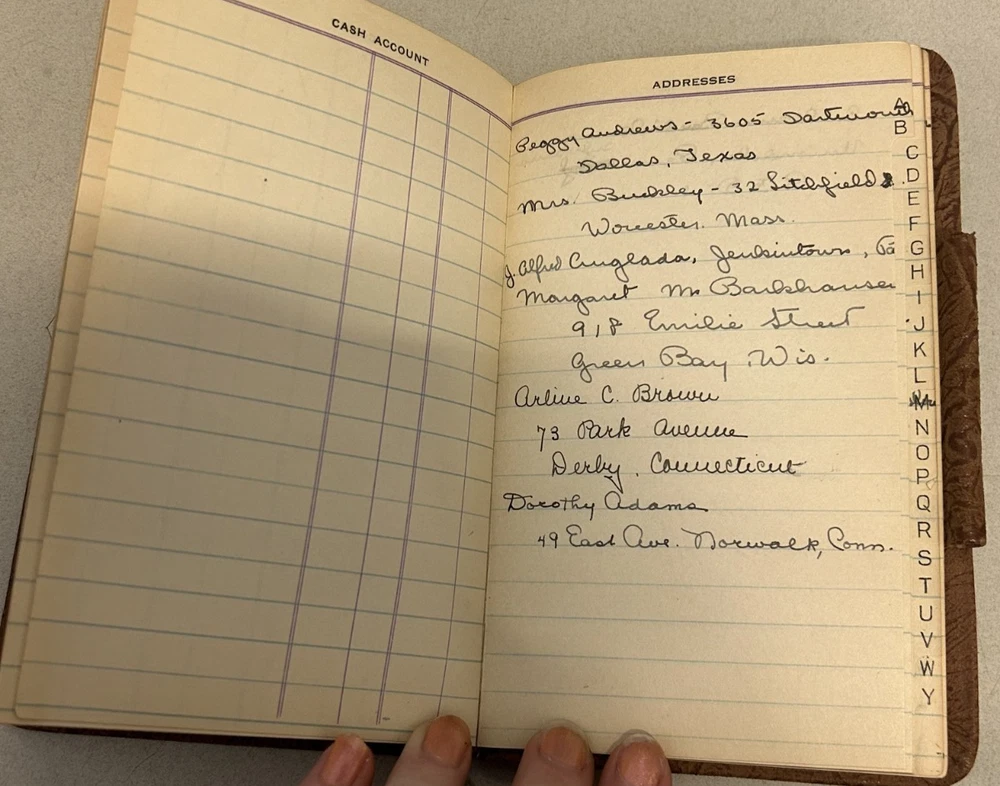 CASH ACCOUNT
ADDRESSES
Peggy Andrews - 3605 Dartmouth
Dallas, Texas
Mrs. Buckley - 32 Litchfield
Worcester, Mass.
J. Alfred Anglada, Jenkintown, Pa
Margaret Barkhausen
918 Emilie Street
Green Bay, Wis.
Arline C. Brown
73 Park Avenue
Derby, Connecticut
Dorothy Adams
49 East Ave. Norwalk, Conn.
A
B
C
D
E
F
G
H
I
J
K
L
M
N
O
P
Q
R
S
T
U
V
W
Y